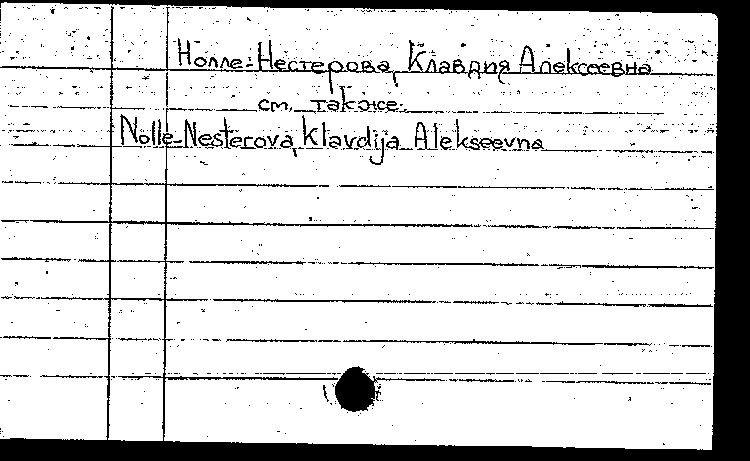 Нолле-Нестерова, Клавдия Алексеевна
см. также:
Nolle-Nesterova, Klavdija Alekseevna